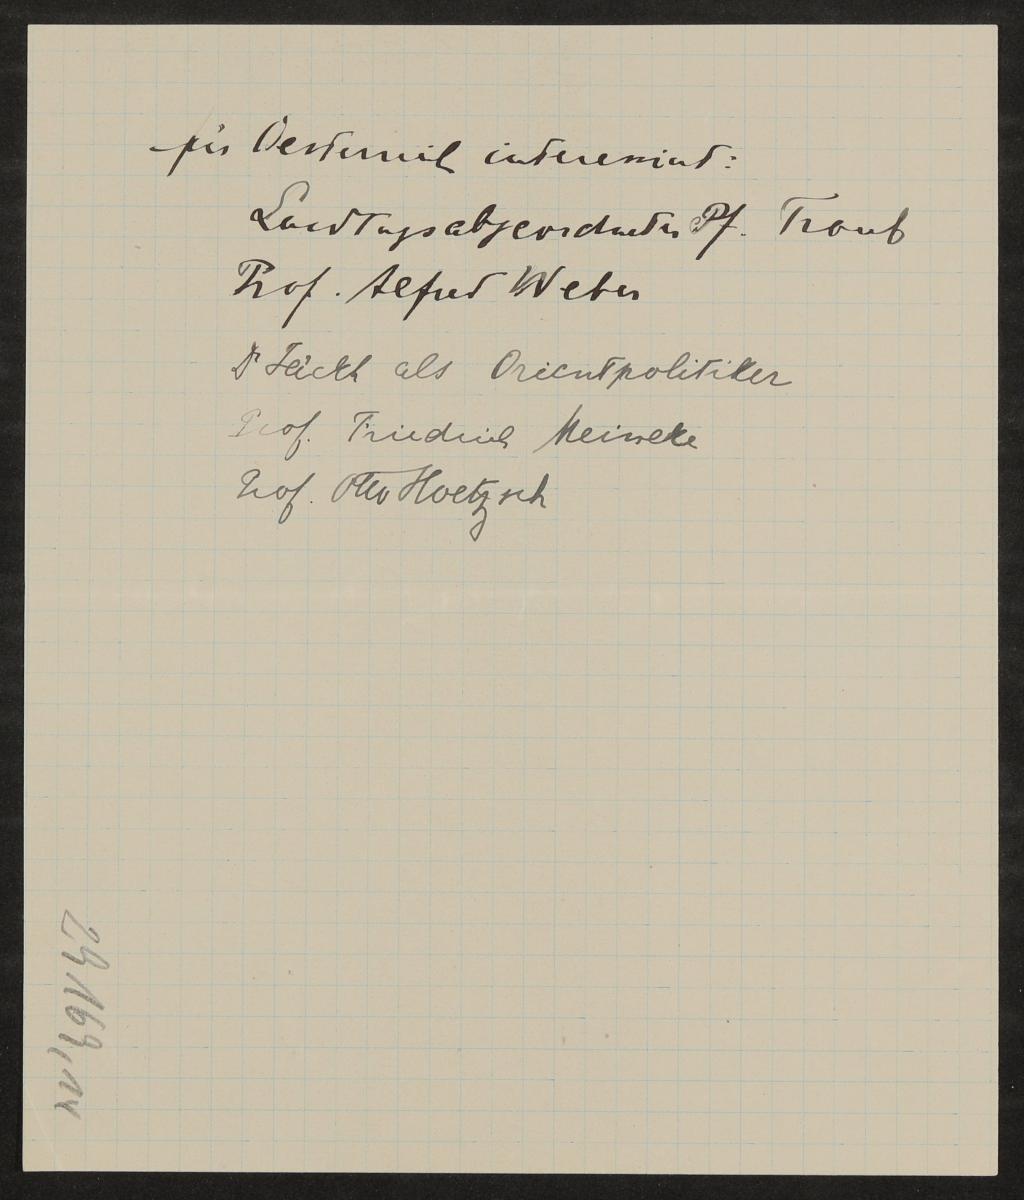 für Oesterreich interessiert:
Landtagsabgeordneter Pf. Traub
Prof. Alfred Weber
Dr Jäckh als Orientpolitiker
Prof. Friedrich Meinecke
Prof. Otto Hoetzsch